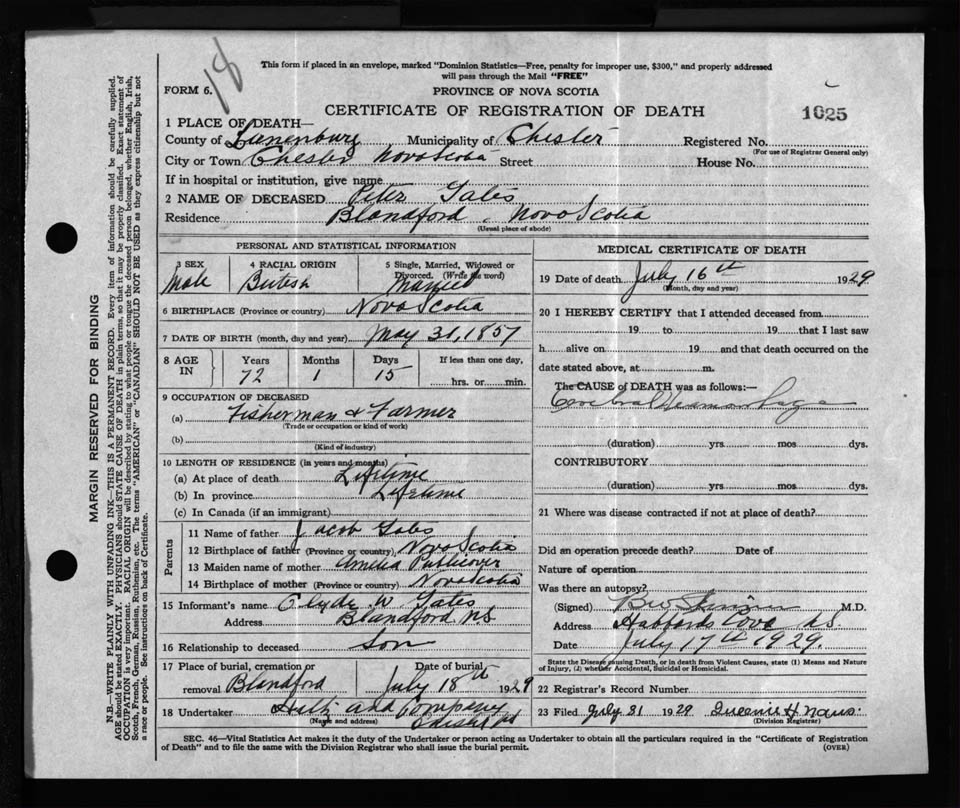 18
This form if placed in an envelope, marked "Dominion Statistics—Free, penalty for improper use, $300," and properly addressed
will pass through the Mail "FREE"
FORM 6.
PROVINCE OF NOVA SCOTIA
CERTIFICATE OF REGISTRATION OF DEATH
1025
1 PLACE OF DEATH—
County of Lunenburg Municipality of Chester Registered No.
(For use of Registrar General only)
City or Town Chester Nova Scotia Street House No.
If in hospital or institution, give name
2 NAME OF DECEASED Peter
Residence Blandford, Nova Scotia
(Usual place of abode)
PERSONAL AND STATISTICAL INFORMATION
3 SEX
Male
4 RACIAL ORIGIN
British
5 Single, Married, Widowed or
Divorced. (Write the word)
Married
6 BIRTHPLACE (Province or country) Nova Scotia
7 DATE OF BIRTH (month, day and year) May 31, 1857
8 AGE
IN
Years
72
Months
1
Days
15
If less than one day,
hrs. or min.
9 OCCUPATION OF DECEASED
(a) Fisherman & Farmer
(Trade or occupation or kind of work)
(b)
(Kind of industry)
10 LENGTH OF RESIDENCE (in years and months)
(a) At place of death Lifetime
(b) In province Lifetime
(c) In Canada (if an immigrant)
Parents
11 Name of father Jacob
12 Birthplace of father (Province or country) Nova Scotia
13 Maiden name of mother Amelia Publicover
14 Birthplace of mother (Province or country) Nova Scotia
15 Informant's name Clyde W
Address Blandford N.S
16 Relationship to deceased Son
17 Place of burial, cremation or
removal Blandford
Date of burial
July 18th 1929
18 Undertaker and Company
(Name and address)
MEDICAL CERTIFICATE OF DEATH
19 Date of death July 16th 1929
(Month, day and year)
20 I HEREBY CERTIFY that I attended deceased from
19 to 19 that I last saw
h alive on 19 and that death occurred on the
date stated above, at m.
The CAUSE OF DEATH was as follows:—
Cerebral Heamorrhage
(duration) yrs. mos. dys.
CONTRIBUTORY
(duration) yrs. mos. dys.
21 Where was disease contracted if not at place of death?
Did an operation precede death? Date of
Nature of operation
Was there an autopsy?
(Signed) M.D.
Address Hubbards Cove N.S.
Date July 17th 1929.
State the Disease causing Death, or in death from Violent Causes, state (1) Means and Nature
of Injury, (2) whether Accidental, Suicidal or Homicidal.
22 Registrar's Record Number
23 Filed July 31 1929
(Division Registrar)
SEC. 46—Vital Statistics Act makes it the duty of the Undertaker or person acting as Undertaker to obtain all the particulars required in the "Certificate of Registration
of Death" and to file the same with the Division Registrar who shall issue the burial permit.
(OVER)
MARGIN RESERVED FOR BINDING
N.B—WRITE PLAINLY, WITH UNFADING INK—THIS IS A PERMANENT RECORD. Every item of information should be carefully supplied.
AGE should be stated EXACTLY. PHYSICIANS should STATE CAUSE OF DEATH in plain terms, so that it may be properly classified. Exact statement of
OCCUPATION is very important. RACIAL ORIGIN will be described by stating to what people or tongue the deceased person belonged, whether English, Irish,
Scotch, French, German, Russian, Ruthenian, etc. The terms "AMERICAN" or "CANADIAN" SHOULD NOT BE USED as they express citizenship but not
a race or people. See instructions on back of Certificate.